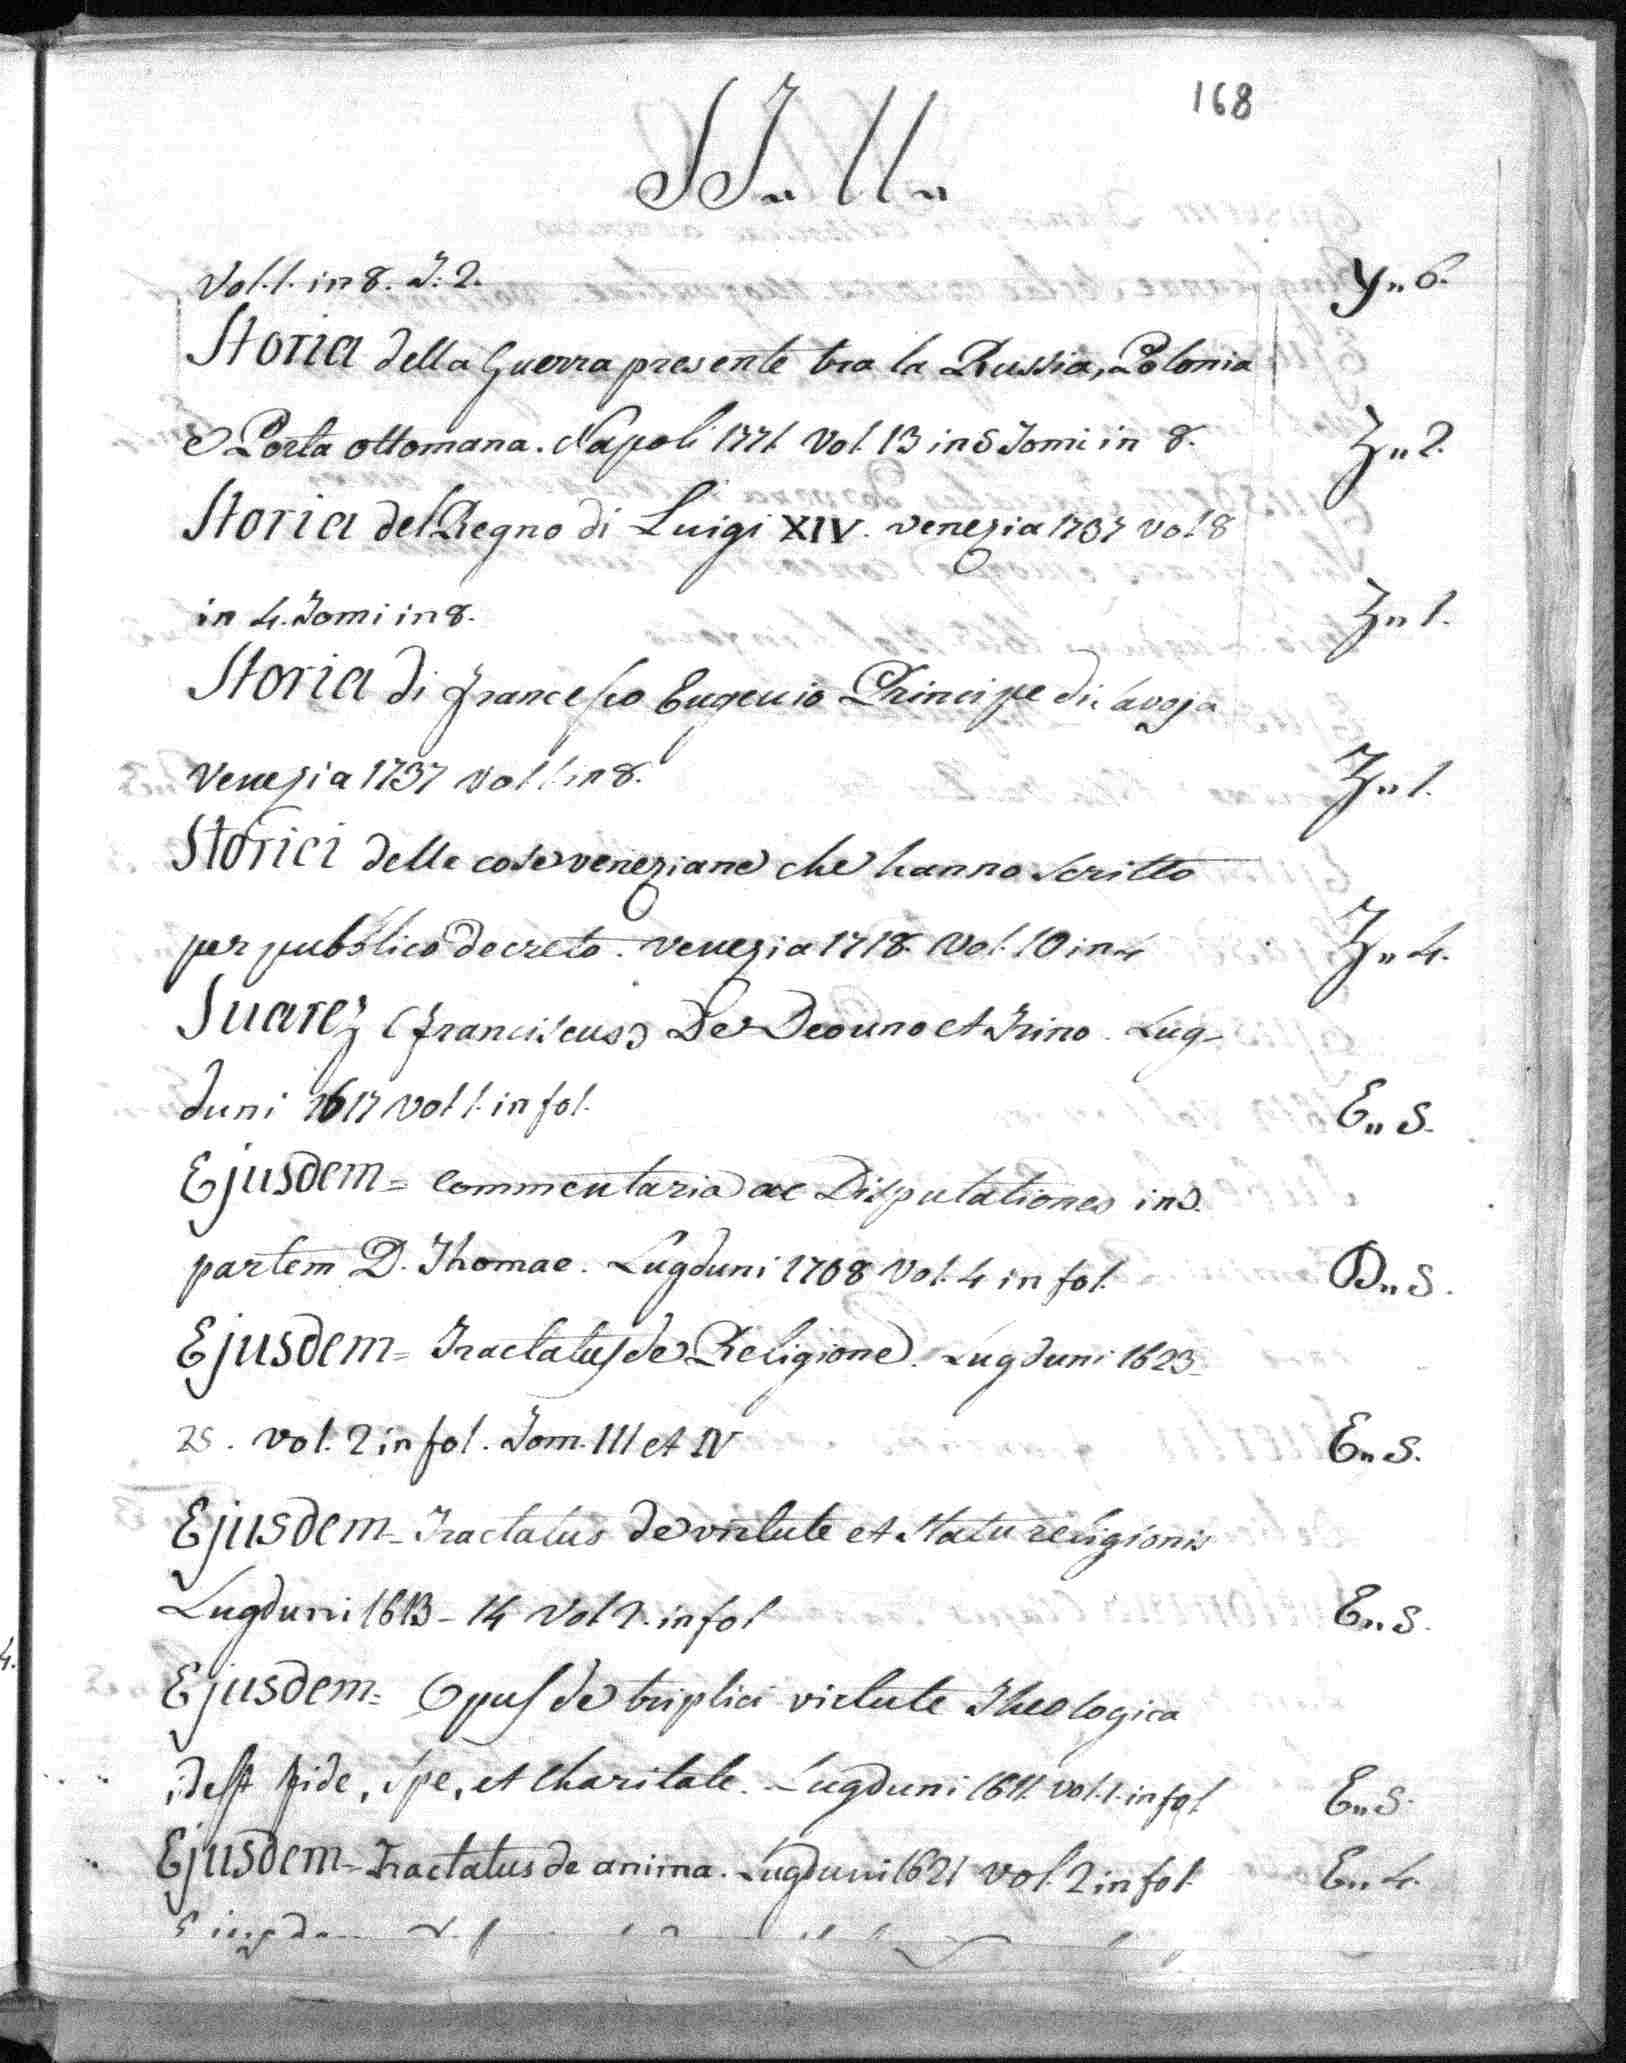 168
S T. U.
Vol. 1. in 8. T: 2. Y„ 6.
Storia della Guerra presente tra la Russia, Polonia
e Porta ottomana. Napoli 1771. Vol. 13 in 5 Tomi in 8. Z„ 2.
Storia del Regno di Luigi XIV. venezia 1737 vol 8
in 4. Tomi in 8. Z„ 1.
Storia di Francesco Eugenio Principe di Savoja
Venezia 1737 vol 1. in 8. Z„ 1.
Storici delle cose veneziane che hanno scritto
per pubblico decreto. venezia 1718. Vol. 10 in 4 Z„ 4.
Suarez (Franciscus) De Deo uno et Trino. Lug-
duni 1617 vol 1. in fol. E„ 5.
Ejusdem= Commentaria ac Disputationes in 3.
partem D. Thomae. Lugduni 1708 Vol. 4 in fol. D„ 5.
Ejusdem= Tractatus de Religione. Lugduni 1623-
25. vol. 2 in fol. Tom. III et IV E„ 5.
Ejusdem- Tractatus de virtute et statu religionis
Lugduni 1613-14 Vol 2. in fol E„ 5.
Ejusdem= Opus de triplici virtute Theologica
idest fide, spe, et Charitate. Lugduni 1621. vol. 1. in fol E„ 5.
Ejusdem- Tractatus de anima. Lugduni 1621 vol. 2 in fol. E„ 4.
4.